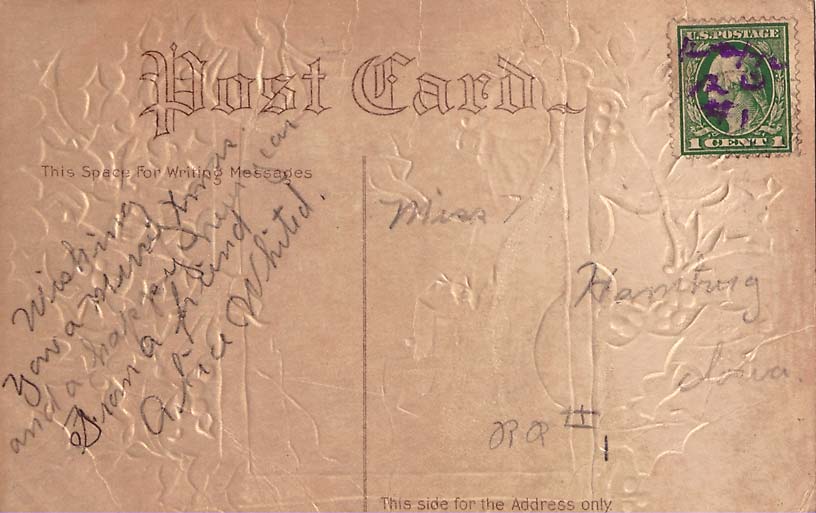 Post Card
U.S. POSTAGE
1 CENT 1
This Space For Writing Messages
Wishing
You a Merry Xmas.
and a happy New year
From a friend
Alice Whited.
Miss
Hamburg
Iowa.
RR #
1
This side for the Address only